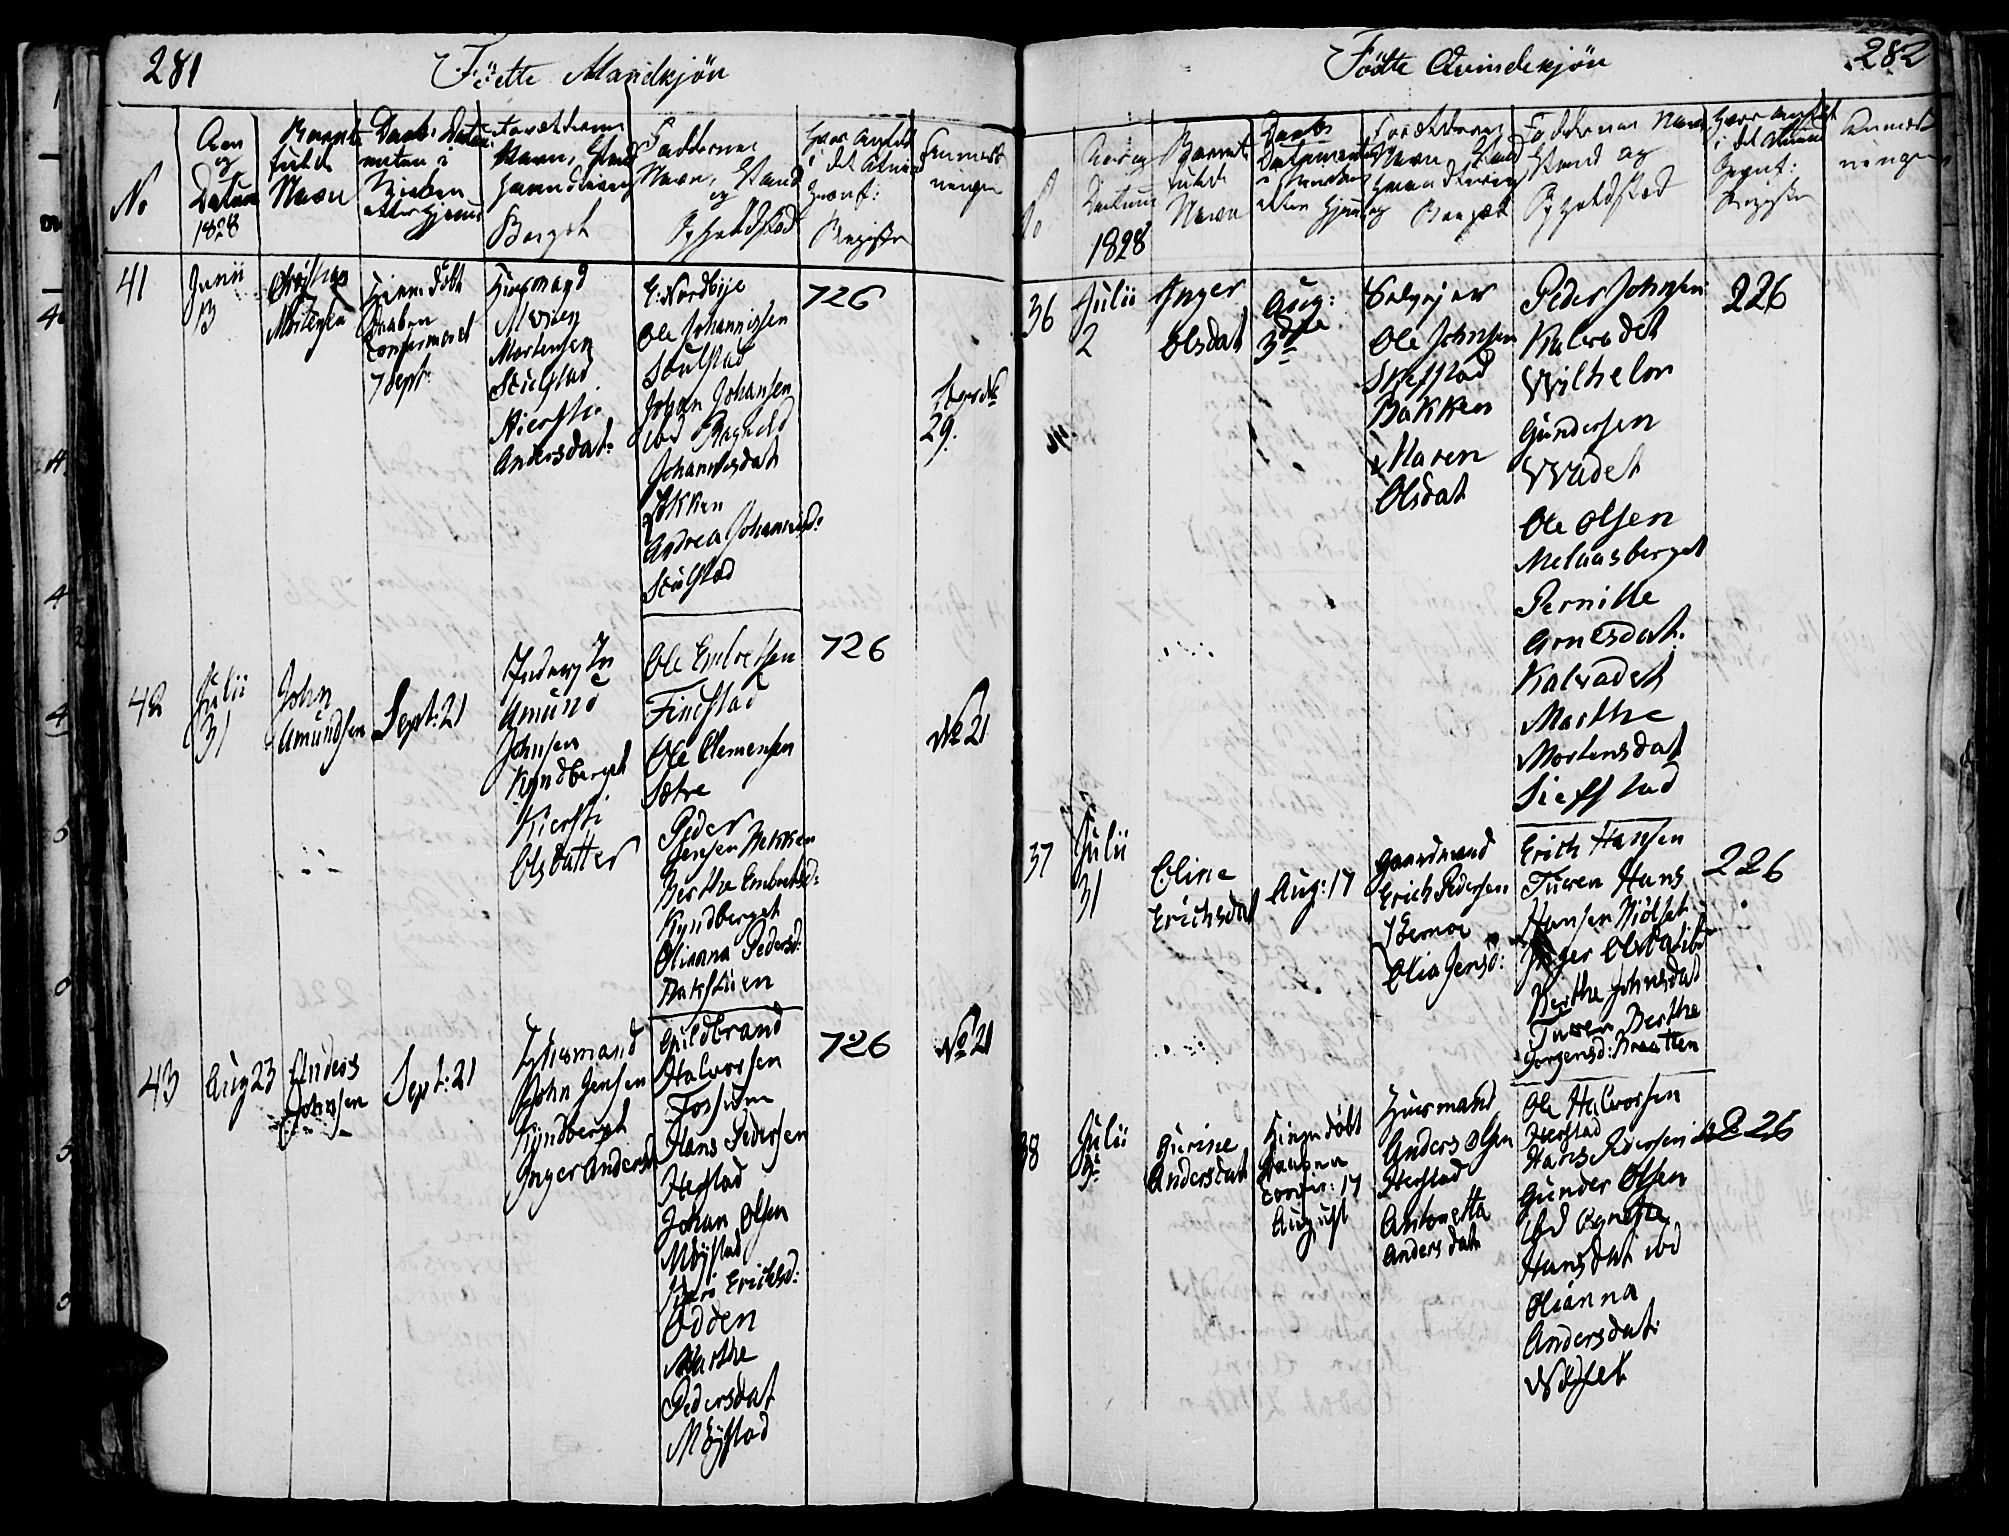 281
Födte Mandkjön
No
Aar
og
Datum
1828
Barnets
fulde
Navn
Daabs Datum
Kirken
eller hjemme
Forældrenes
Navn, Stand
Haandtering
Boepæl
Faddernes
Navn, Stand
og
Opholdsted
Hvor anført
i det almind
Register
41
Junii
13
Christian
Mortensen
Hjemdöbt
Daaben
Confirmeret
7 Sept:
Huusmand
Morten
Mortensen
Skulstad
Kiersti
Andersdat:
E: Nordbye
Ole Johannissen
Skulstad
Johan Johansen
ibd Ragnild
Johannisdat
Lökken
Andrea Johannisd:
Skulstad
726
29.
42
Julii
31
John
Amundsen
Sept: 21
Inderst
Amund
Johnsen
Kyndberget
Kiersti
Olsdatter
Ole Embretsen
Findstad
Ole Clemensen
Sætre
Peder
Jensen Bekken
Berthe Embretsd:
Kyndberget
Olianna Pedersd:
Bakstuen
726
No 21
43
Aug 23
Anders
Johnsen
Sept: 21
Huusmand
John Jensen
Kyndberget
Inger Andersd
Guldbrand
Halvorsen
Fossum
Hans Pedersen
Herstad
Johan Olsen
Möystad
Kari Ericksd:
Odden
Marthe
Pedersdat
Möystad
726
No 21
282
Födte Qvindekjön
No
Aar og
Datum
1828
Barnets
fulde
Navn
Daabs
Datum
eller hjemme
Forældrenes
Navn Stand
Haandtering
og Boepæl
Faddernes Navn
Stand og
Opholdsted
Hvor anført
i det almind
Register
36
Julii
2
Inger
Olsdat
Aug:
3die
Selvejer
Ole Johnsen
Bakken
Maren
Olsdat
Peder Johnsen
Kalvadet
Wilhelm
Gundersen
Wadet
Ole Olsen
Melaasberget
Pernille
Arnesdat:
Kalvadet
Marthe
Mortensdat
226
37
Julii
31
Eline
Erichsdat
Aug: 17
Gaardmand
Erich Pedersen
Olia Jensd:
Erich Hansen
Tuven Hans
Hansen
Inger Olsdat ibd
Berthe Johnsdat
Tuven Berthe
Jorgensd: Braatten
226
38
Julii
Gurine
Andersdat
Hiemdöbt
Daaben
Confir: 17
August
Huusmand
Anders Olsen
Herstad
Antonetta
Andersdat
Ole Halvorsen
Herstad
Hans Pedersen
Gunder Olsen
ibd Agnethe
Hansdat ibd
Olianna
Andersdat:
226